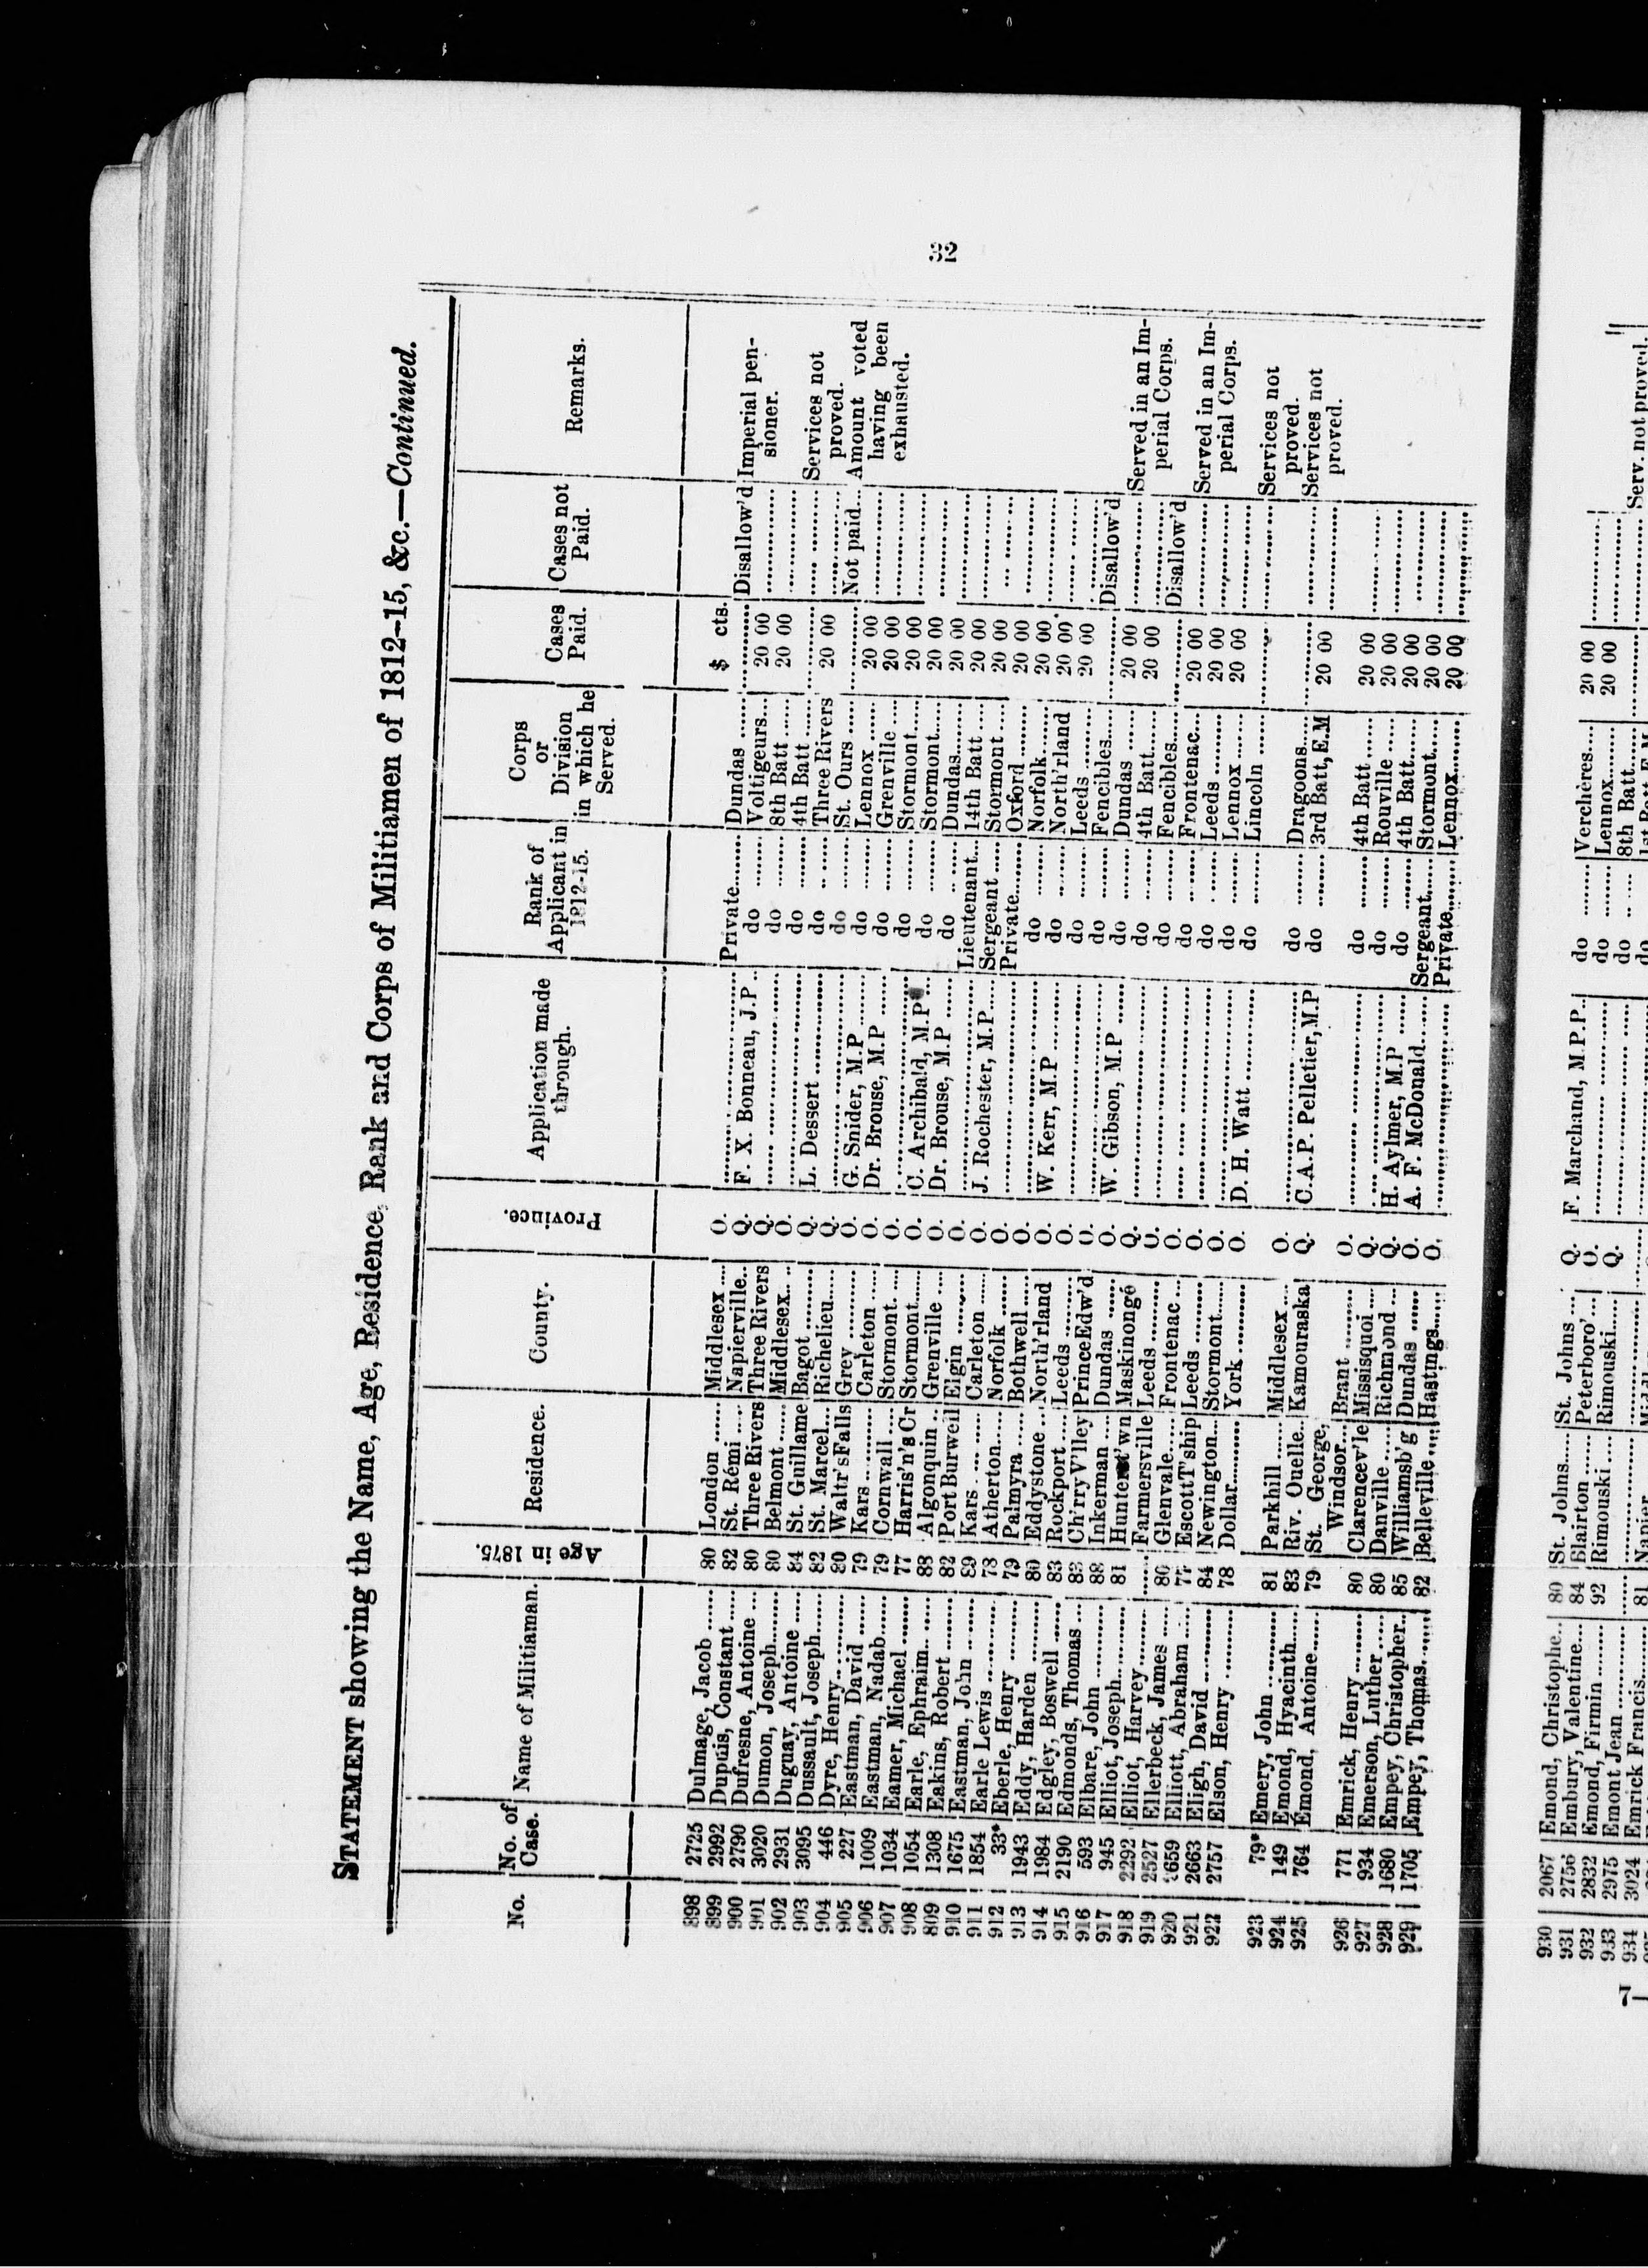 32
STATEMENT showing the Name, Age, Residence, Rank and Corps of Militiamen of 1812-15, &c.—Continued.
No. No. of Case. Name of Militiaman. Age in 1875. Residence. County. Province. Application made through. Rank of Applicant in 1812-15. Corps or Division in which he Served. Cases Paid. Cases not Paid. Remarks.
$ cts.
898 2725 Dulmage, Jacob 80 London Middlesex O. Private Dundas Disallow'd Imperial pensioner.
899 2992 Dupuis, Constant 82 St. Rémi Napierville Q. F. X. Bonneau, J.P. do Voltigeurs 20 00
900 2790 Dufresne, Antoine 80 Three Rivers Three Rivers Q. do 8th Batt 20 00
901 3020 Dumon, Joseph 80 Belmont Middlesex O. do 4th Batt Services not proved.
902 2931 Duguay, Antoine 84 St. Guillame Bagot Q. L. Dessert do Three Rivers 20 00
903 3095 Dussault, Joseph 82 St. Marcel Richelieu Q. do St. Ours Not paid Amount voted having been exhausted.
904 446 Dyre, Henry 80 Waltr's Falls Grey O. G. Snider, M.P do Lennox 20 00
905 227 Eastman, David 79 Kars Carleton O. Dr. Brouse, M.P do Grenville 20 00
906 1009 Eastman, Nadab 79 Cornwall Stormont O. do Stormont 20 00
907 1034 Eamer, Michael 77 Harris'n's Cr Stormont O. C. Archibald, M.P do Stormont 20 00
908 1054 Earle, Ephraim 88 Algonquin Grenville O. Dr. Brouse, M.P do Dundas 20 00
809 1308 Eakins, Robert 82 Port Burwell Elgin O. Lieutenant 14th Batt 20 00
910 1675 Eastman, John 89 Kars Carleton O. J. Rochester, M.P. Sergeant Stormont 20 00
911 1854 Earle Lewis 78 Atherton Norfolk O. Private Oxford 20 00
912 33* Eberle, Henry 79 Palmyra Bothwell O. do Norfolk 20 00
913 1943 Eddy, Harden 80 Eddystone North'rland O. W. Kerr, M.P do North'rland 20 00
914 1984 Edgley, Boswell 83 Rockport Leeds O. do Leeds 20 00
915 2190 Edmonds, Thomas 83 Ch'rry V'lley Prince Edw'd O. do Fencibles Disallow'd Served in an Imperial Corps.
916 593 Elbare, John 88 Inkerman Dundas O. W. Gibson, M.P do Dundas 20 00
917 945 Elliot, Joseph 81 Maskinongé Q. do 4th Batt 20 00
918 2292 Elliot, Harvey Farmersville Leeds O. do Fencibles Disallow'd Served in an Imperial Corps.
919 2527 Ellerbeck, James 80 Glenvale Frontenac O. do Frontenac 20 00
920 2659 Elliott, Abraham 77 Escott T'ship Leeds O. do Leeds 20 00
921 2663 Eligh, David 84 Newington Stormont O. do Lennox 20 00
922 2757 Elson, Henry 78 Dollar York O. D. H. Watt do Lincoln Services not proved.
923 79* Emery, John 81 Parkhill Middlesex O. do Dragoons Services not proved.
924 149 Emond, Hyacinth 83 Riv. Ouelle Kamouraska Q. C. A. P. Pelletier, M.P do 3rd Batt, E.M 20 00
925 764 Émond, Antoine 79 St. George, Windsor Brant O. do 4th Batt 20 00
926 771 Emrick, Henry 80 Clarencev'le Missisquoi Q. do Rouville 20 00
927 934 Emerson, Luther 80 Danville Richmond Q. H. Aylmer, M.P do 4th Batt 20 00
928 1680 Empey, Christopher 85 Williamsb'g Dundas O. A. F. McDonald Sergeant Stormont 20 00
929 1705 Empey, Thomas 82 Belleville Hastings O. Private Lennox 20 00
930 2067 Emond, Christophe 80 St. Johns St. Johns Q. F. Marchand, M.P.P. do Verchères 20 00
931 2756 Embury, Valentine 84 Blairton Peterboro' O. do Lennox 20 00
932 2832 Emond, Firmin 92 Rimouski Rimouski Q. do 8th Batt Serv. not proved.
933 2975 Emont Jean
934 3024 Emrick Francis 81
7—